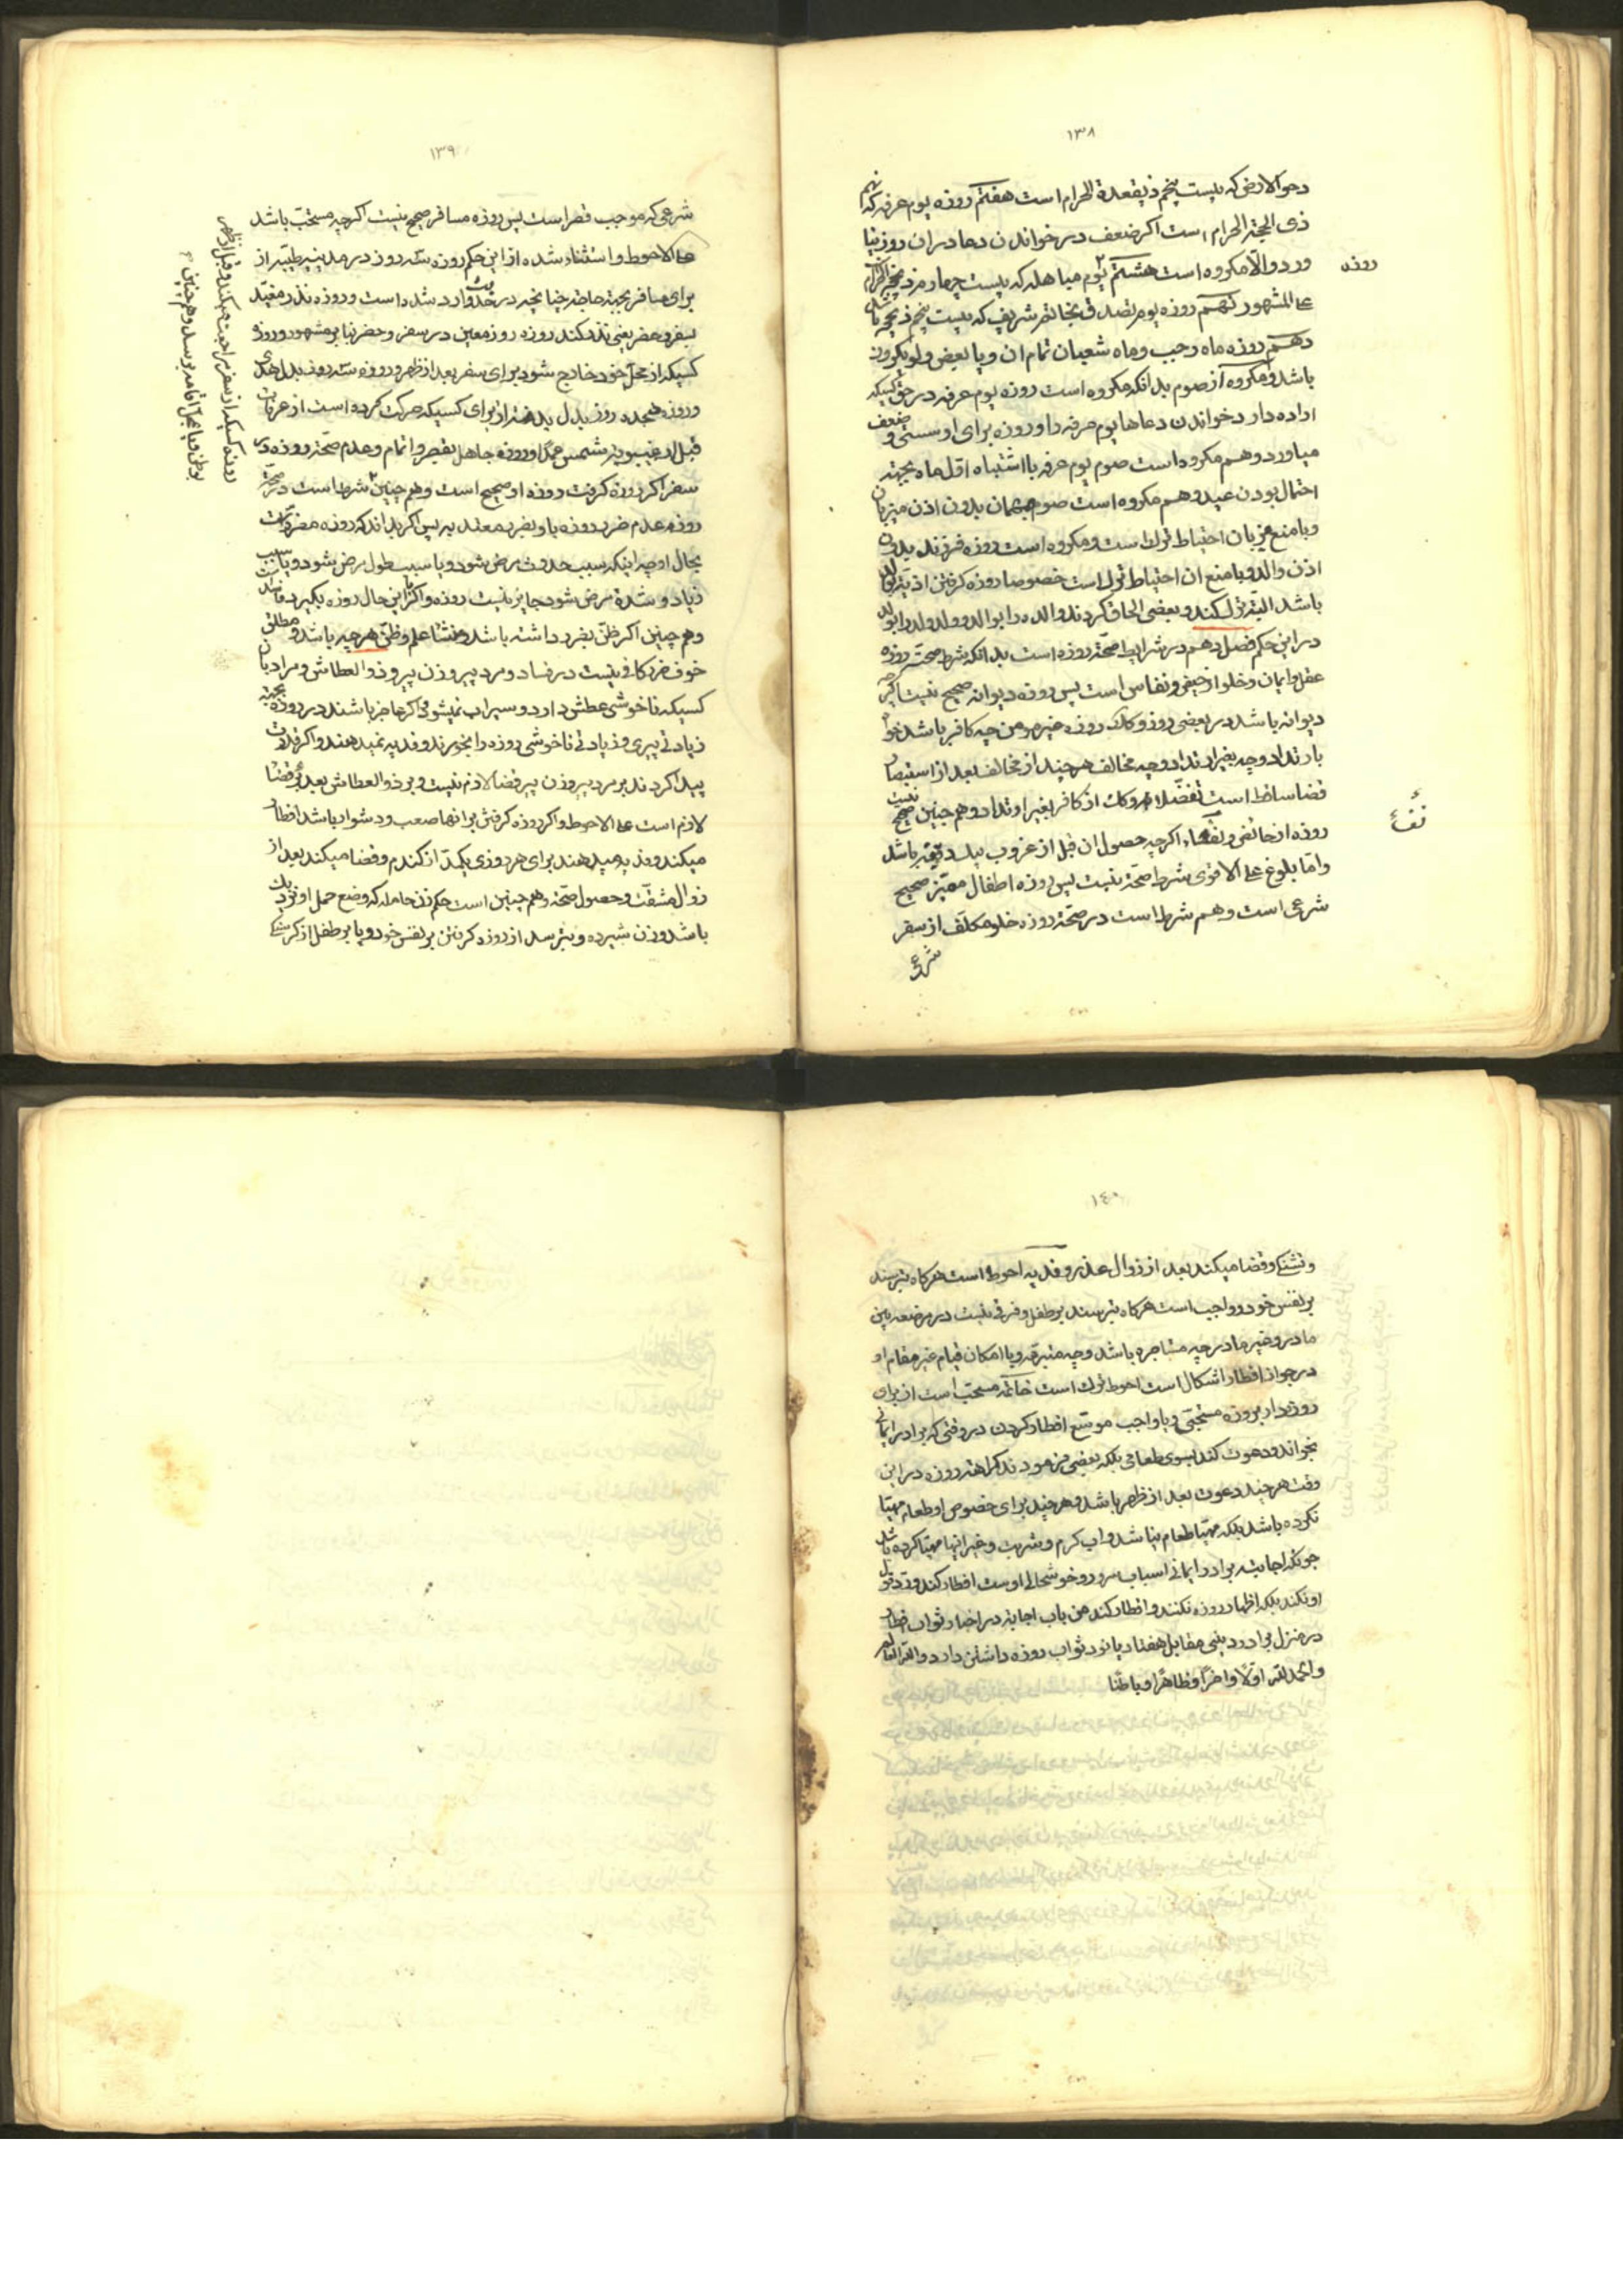 ١٣٨
دحوالارض که بیست پنجم ذیقعدة الحرام است هفتم روزه یوم عرفه که نهم
ذی الحجة الحرام است اکر ضعف در خواندن دعا در ان روز نیا
ورد والّا مکروه است هشتم یوم مباهله که بیست چهارم ذیحجة الحرام
روزه
علی المشهور نهم روزه یوم تصدق بخاتم شریف که بیست پنجم ذیحجه باشد
دهم روزه ماه رجب وماه شعبان تمام ان ویا بعض ولو یکروز
باشد ومکروه از صوم بدانکه مکروه است روزه یوم عرفه در حق کسیکه
اراده دارد خواندن دعاها یوم عرفه را وروزه برای او سستی و ضعف
میاورد وهم مکروه است صوم یوم عرفه با اشتباه اول ماه بجهته
احتمال بودن عید وهم مکروه است صوم مهمان بدون اذن میزبان
وبا منع میزبان احتیاط ترک است ومکروه است روزه فرزند بدون
اذن والد وبا منع ان احتیاط ترک است خصوصا روزه کرفتن
باشد البته ترک کند وبعضی الحاق کردند والده را بوالد وولد ولد را بولد
در این حکم فصل دهم در شرایط صحّة روزه است بدانکه شرط صحّت روزه
عقل وایمان وخلو از حیض ونفاس است پس روزه دیوانه صحیح نیست اکرچه
دیوانه باشد در بعضی روز وکذلک روزه غیر مومن چه کافر باشد خواه
بارتداد وچه بغیر ارتداد وچه مخالف هر چند از مخالف بعد از استبصار
قضا ساقط است تفضّلا وکذلک از کافر بغیر ارتداد وهم چنین صحیح نیست
نفسا
روزه از حائض ونفساء اکرچه حصول ان قبل از غروب بیک دقیقه باشد
وامّا بلوغ علی الاقوی شرط صحّة نیست پس روزه اطفال ممیّز صحیح
شرعی است وهم شرط است در صحّة روزه خلو مکلّف از سفر
شرعی
١٣٩
شرعی که موجب قصر است پس روزه مسافر صحیح نیست اکرچه مستحبّ باشد
علی الاحوط واستثناء شده از این حکم روزه سّه روز در مدینه طیّبه از
برای مسافر بجهته حاجة چنانچه در حدیث وارد شده است وروزه نذر مقیّد
بسفر وحضر یعنی نذر کند روزه روز معین در سفر وحضر بنا بر مشهور وروزه
کسیکه از محلّ خود خارج شود برای سفر بعد از ظهر وروزه سّه روز بدل هدی
وروزه هجده روز بدل بدنه از برای کسیکه حرکت کرده است از عرفات
قبل از غیبوبته شمس عمدًا وروزه جاهل بقصر واتمام وعدم صحّة روزه در
سفر اکر روزه کرفت روزه او صحیح است وهم چنین شرط است در صحّة
روزه عدم ضرر روزه باو بضرر معتد به پس اکر بداند که روزه مضرّ است
بحال او چه اینکه سبب حدوث مرض شود ویا سبب طول مرض شود ویا سبب
زیاد وشدة مرض شود جایز نیست روزه واکر با این حال روزه بکیرد فاسد است
وهم چنین اکر ظنّ بضرر داشته باشد ومنشا علم وظنّ هر چه باشد و مطلق
خوف ضرر کافی نیست در فساد ومرد پیر وزن پیر وذو العطاش ومراد بان
کسیکه ناخوشی عطش دارد وسیراب نمیشود اکر عاجز باشند در روزه بجهته
زیادتی پیری وزیادتی ناخوشی روزه را بخورند وفدیه نمیدهند واکر قدرت
پیدا کردند بر مرد پیر وزن پیر قضا لازم نیست وبر ذو العطاش بعد برء قضا
لازم است علی الاحوط واکر روزه کرفتن بر انها صعب ودشوار باشد افطار
میکند وفدیه میدهند برای هر روزی یکمدّ از کندم وقضا میکند بعد از
زوال مشقّت وحصول صحّة وهم چنین است حکم زن حامله که وضع حمل او نزدیک
باشد وزن شیرده وبترسد از روزه کرفتن بر نفس خود ویا بر طفل از کرسنکی
روزه کسیکه از سفر مراجعت میکند وقبل از ظهر
بوطن ویا محلّ اقامه برسد وهم چنین
١٤٠
وتشنکی وقضا میکند بعد از زوال عذر وفدیه احوط است هر کاه بترسند
بر نفس خود وواجب است هرکاه بترسند بر طفل وفرقی نیست در مرضعه بین
مادر وغیر مادر چه مستاجره باشد وچه متبرعه وبا امکان قیام غیر مقام او
در جواز افطار اشکال است احوط ترک است خاتمه مستحب است از برای
روزه دار بروزه مستحبّی ویا واجب موسّع افطار کردن در وقتی که برادر ایمانی
بخواند ودعوت کند بسوی طعامی بلکه بعضی فرمودند کراهة روزه در این
وقت هر چند دعوت بعد از ظهر باشد وهر چند برای خصوص او طعام مهیّا
نکرده باشد بلکه مهیّا طعام نباشد واب کرم وشربت وغیر انها مهیّا کرده باشد
چونکه اجابته برادر ایمانی اسباب سرور وخوشحالی اوست افطار کند وردّ قول
او نکند بلکه اظهار روزه نکنند وافطار کند من باب اجابة در اخبار ثواب افطار
در منزل برادر دینی مقابل هفتاد یا نود ثواب روزه داشتن دارد والله العالم
والحمد لله اوّلًا واخرًا وظاهرًا وباطنًا